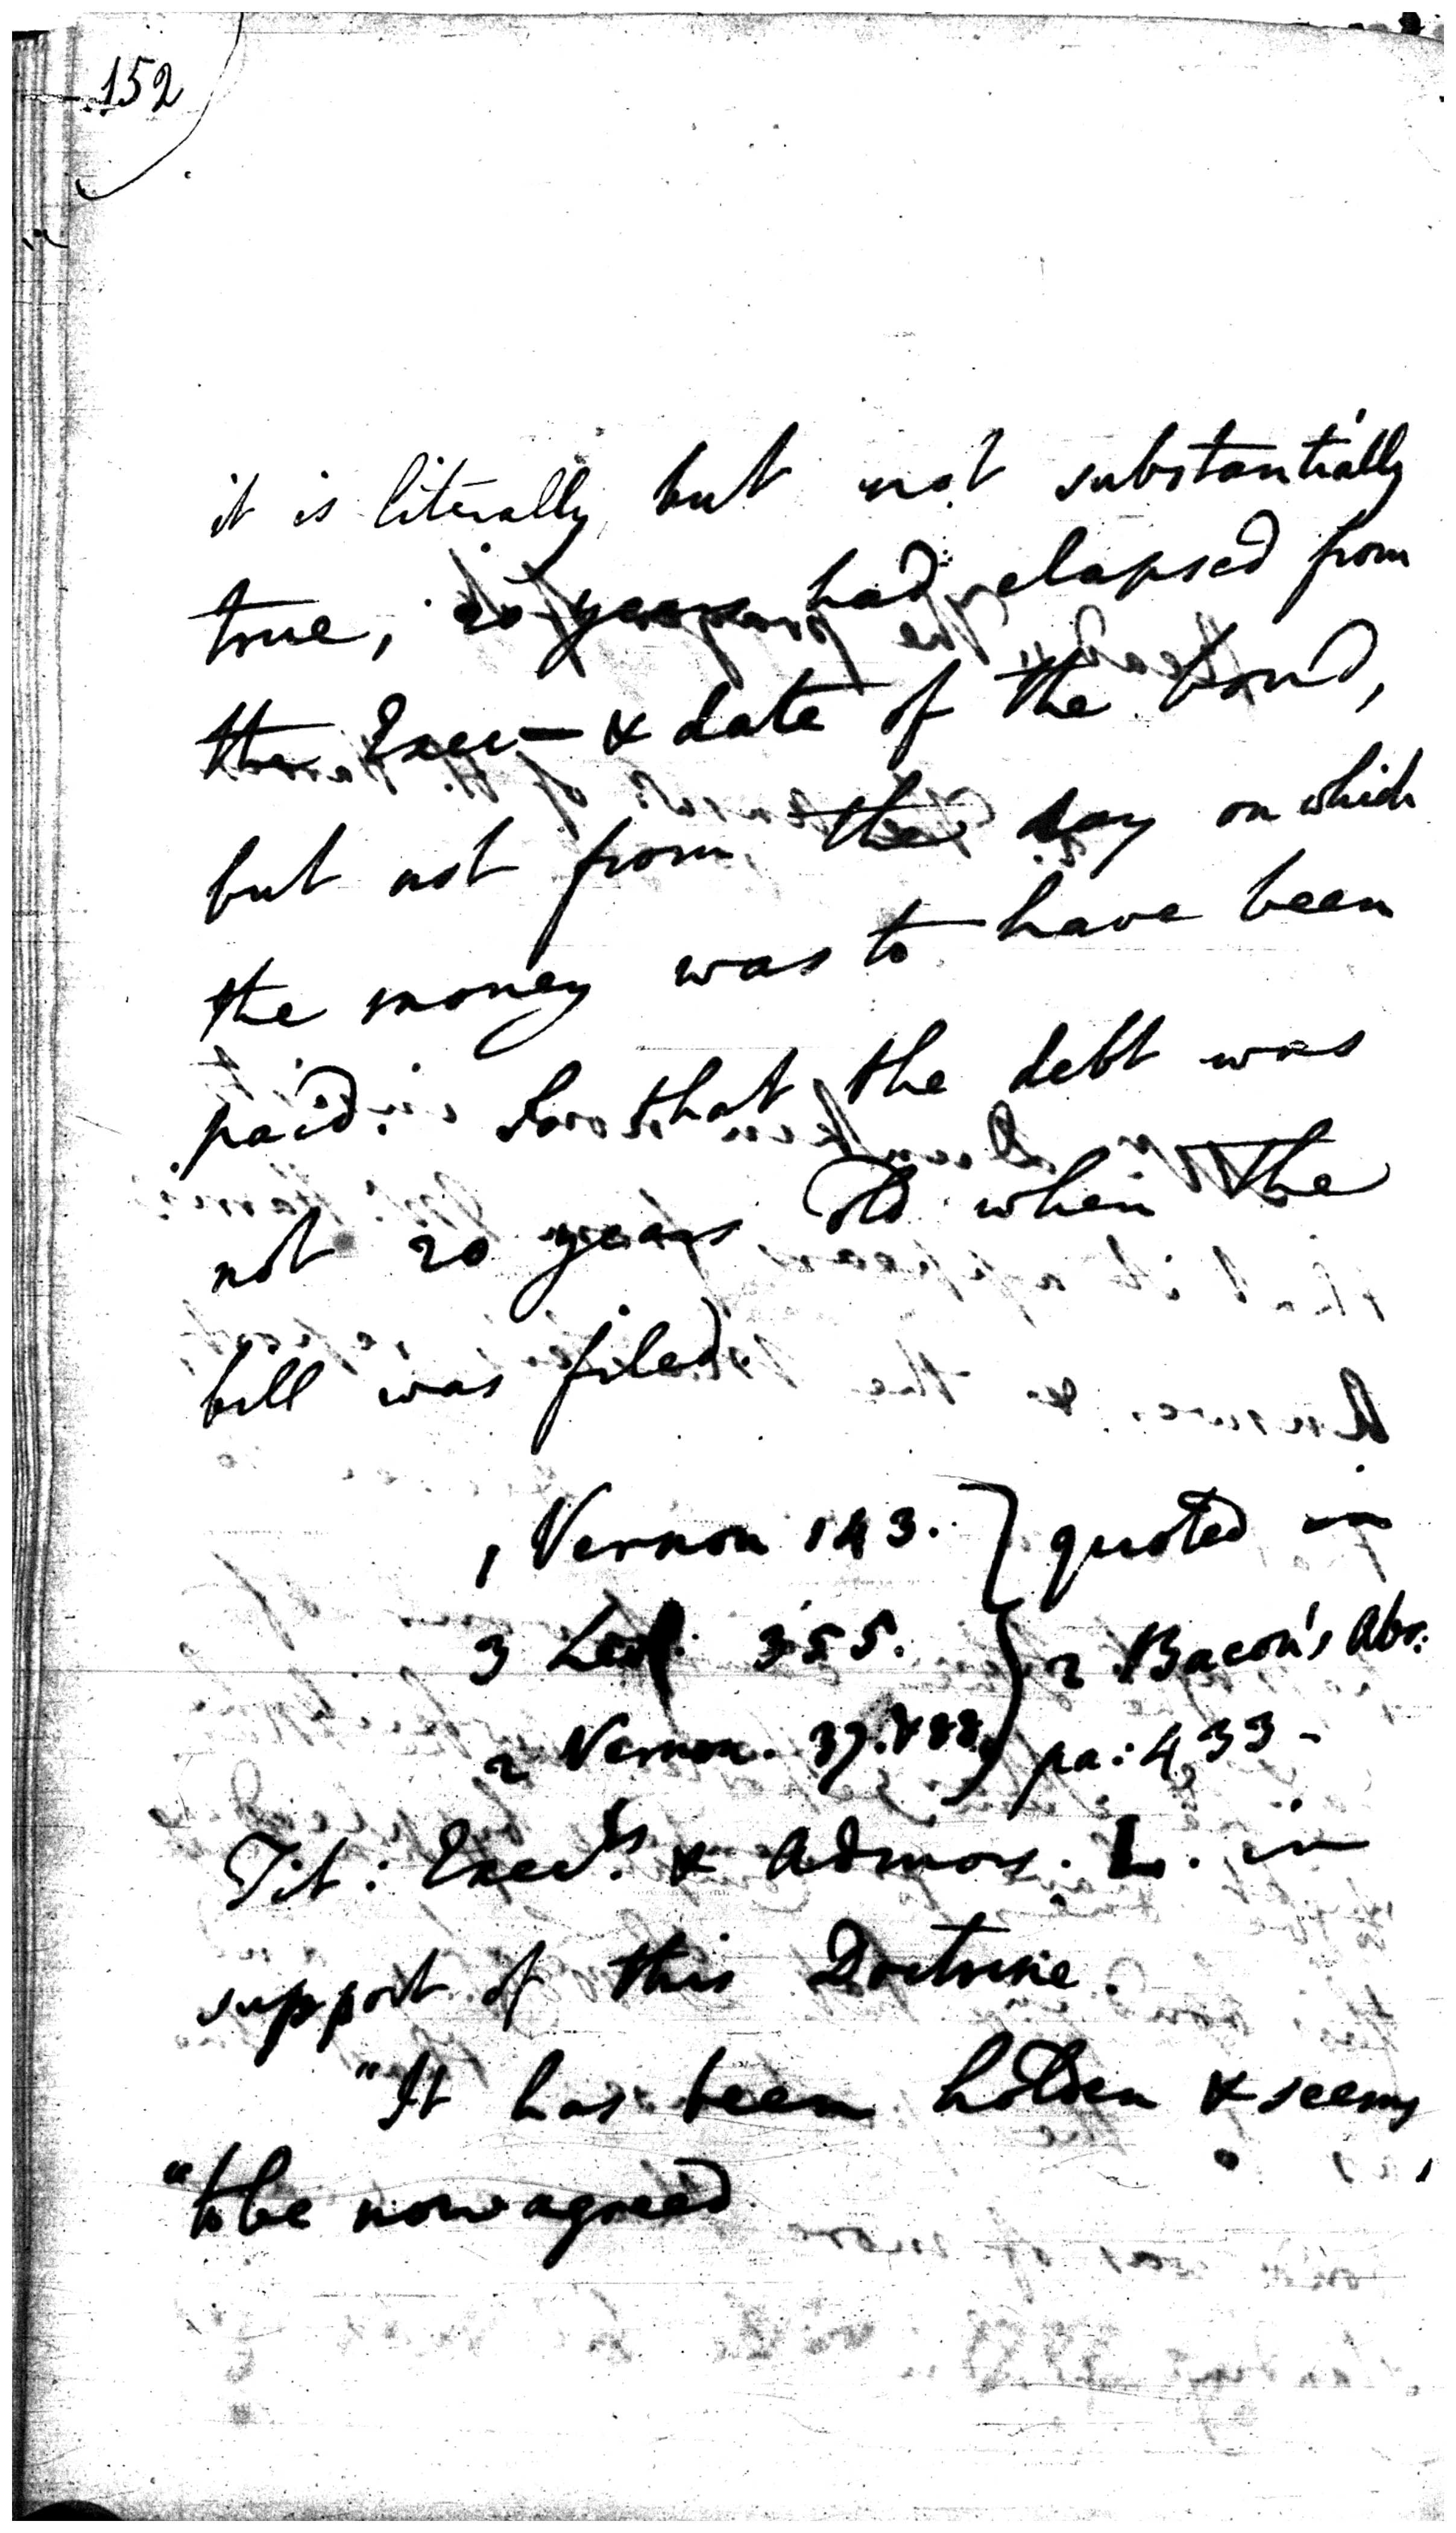 152
it is literally but not substantially
true, 20 years had elapsed from
the Exec— & date of the bond,
but not from the day on which
the money was to have been
paid. So that the debt was
not 20 years old when the
bill was filed.
1 Vernon 143. } quoted in
3 Lev. 355. } 2 Bacon's Abr:
2 Vernon. 37. & 88. } pa: 433 -
Tit: Execrs. & Admors. L. in
support of this Doctrine.
"It has been holden & seems
"to be now agreed